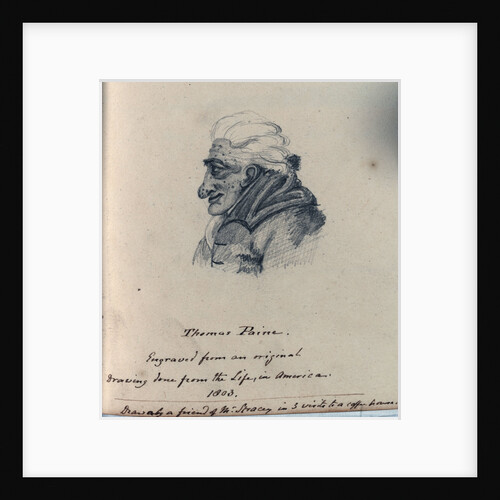 Thomas Paine.
Engraved from an original
Drawing done from the Life, in America.
1803.
Drawn by a friend of Mr. in 3 visits to a coffee house.